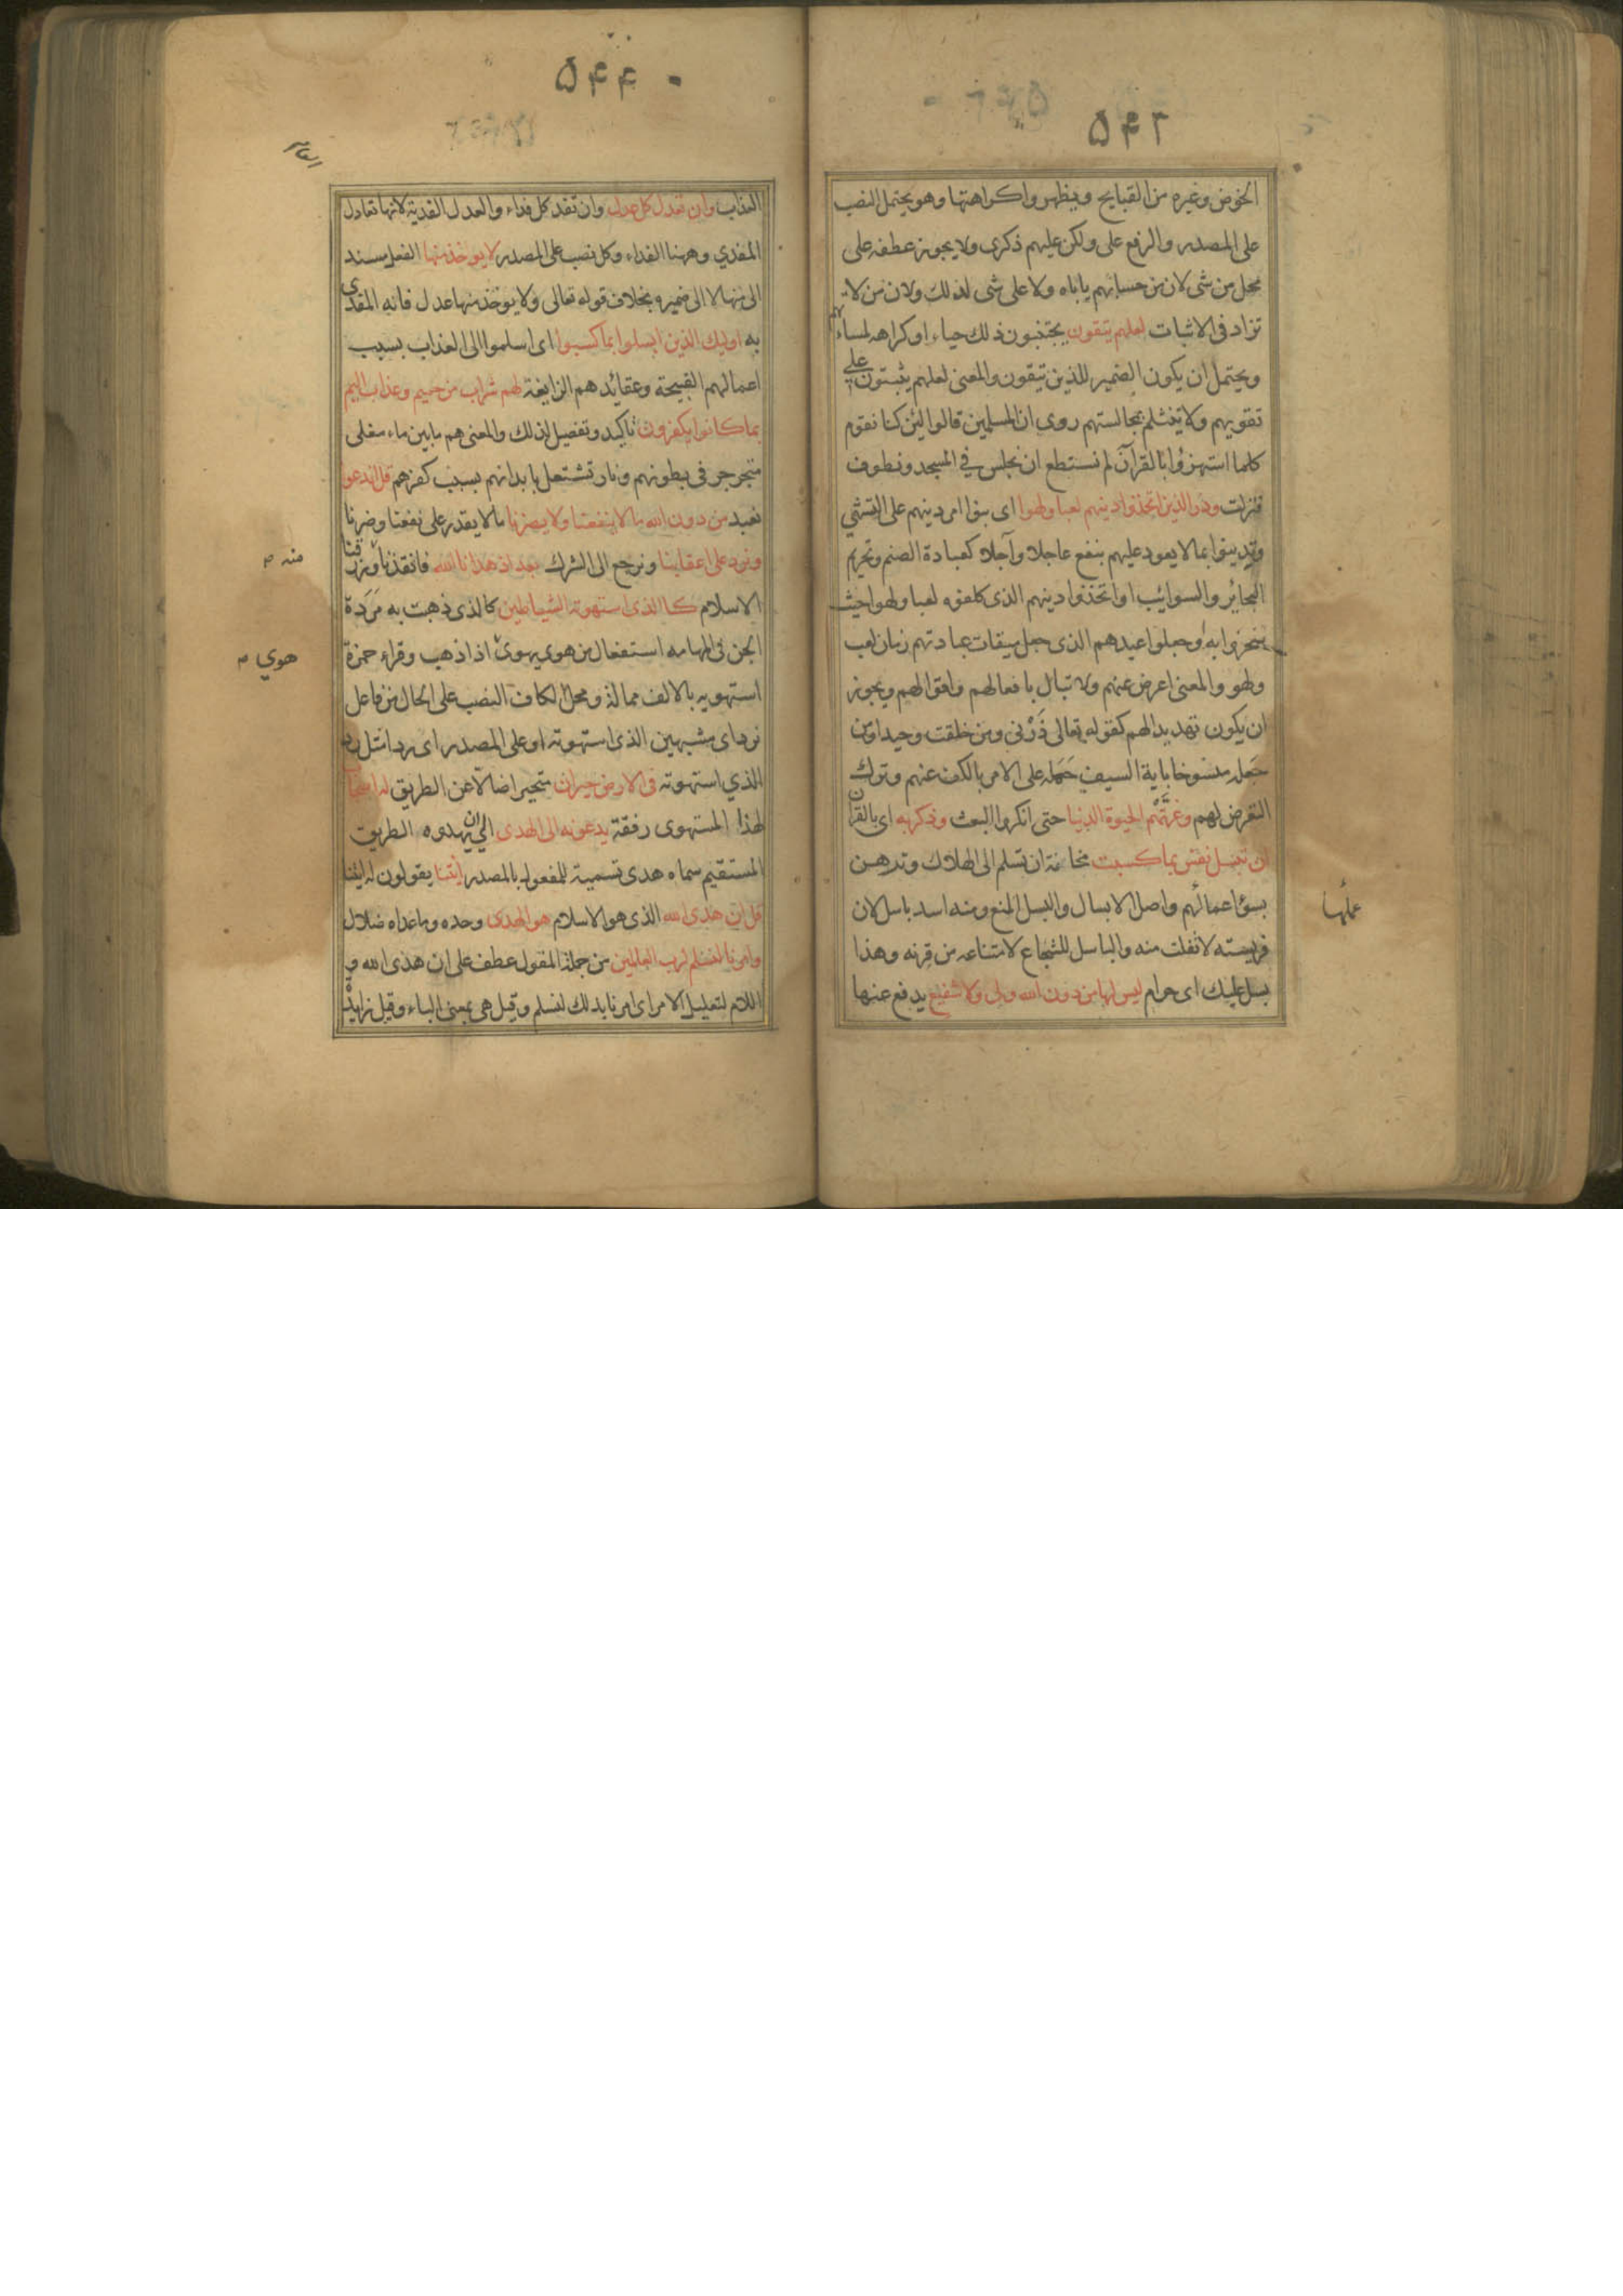 ۵۴۲
الخوض وغيره من القبايح ويظهروا كراهتها وهو يحتمل النصب
على المصدر والرفع على ولكن عليهم ذكرى ولا يجوز عطفه على
محل من شى لان من حسابهم ياباه ولا على شى لذلك ولان من لا
تزاد فى الاثبات لعلهم يتقون يجتنبون ذلك حياء او كراهه لمساءتهم
ويحتمل ان يكون الضمير للذين يتقون والمعنى لعلهم يثبتون على
تقويهم ولا تنثلم بمجالستهم روى ان المسلمين قالوا لئن كنا نقوم
كلما استهزؤا بالقرآن لم نستطع ان نجلس في المسجد ونطوف
فنزلت وذر الذين اتخذوا دينهم لعبا ولهوا اى بنوا امر دينهم على التشهي
وتدينوا بما لا يعود عليهم بنفع عاجلا وآجلا كعبادة الصنم وتحريم
البحاير والسوائب او اتخذوا دينهم الذى كلفوه لعبا ولهوا حيث
سخروا به وجعلوا عيدهم الذى جعل ميقات عبادتهم زمان لعب
ولهو والمعنى اعرض عنهم ولا تبال بافعالهم واقوالهم ويجوز
ان يكون تهديدا لهم كقوله تعالى ذَرْنى ومن خلقت وحيدا ومن
جَعله منسوخا باية السيف حَمَله على الامر بالكف عنهم وترك
التعرض لهم وغرَّتْهم الحيوة الدنيا حتى انكروا البعث وذكر به اى بالقران
ان تبسل نفس بما كسبت مخافة ان تسلم الى الهلاك وترهن
بسوٴ اعمالهم واصل الابسال والبسل المنع ومنه اسد باسل لان
فريسته لا تفلت منه والباسل للشجاع لامتناعه من قِرنه وهذا
بسل عليك اى حرام ليس لها من دون الله ولى ولا شفيع يدفع عنها
عملها
۵۴۴
العذاب وان تعدل كل عدل وان تفد كل فداء والعدل الفدية لانها تعادل
المفدي وههنا الفداء وكل نصب على المصدر لا يوخذ منها الفعل مسند
الى منها لا الى ضميره بخلاف قوله تعالى ولا يوخذ منها عدل فانه المفدى
به اوليك الذين ابسلوا بما كسبوا اى اسلموا الى العذاب بسبب
اعمالهم القبيحة وعقائدهم الزايغة لهم شراب من حميم وعذاب اليم
بما كانوا يكفرون تاكيد وتفصيل لذلك والمعنى هم ما بين ماء مغلى
يتجرجر فى بطونهم ونار تشتعل بابدانهم بسبب كفرهم قل اندعوا
نعبد من دون الله ما لا ينفعنا ولا يضرنا ما لا يقدر على نفعنا وضرنا
ونرد على اعقابنا ونرجع الى الشرك بعد اذ هدانا الله فانقذنا ورزقنا
منه م
الاسلام كالذى استهوته الشياطين كالذى ذهبت به مَرَدة
الجن فى المهامه استفعال من هوى يهوى اذا ذهب وقراء حمزة
هوي م
استهويه بالالف ممالة ومحل الكاف النصب على الحال من فاعل
نرد اى مشبهين الذى استهوته او على المصدر اى ردا مثل رد
الذي استهوته فى الارض حيران متحيرا ضالا عن الطريق له اصحاب
لهذا المستهوى رفقة يدعونه الى الهدى الى ان يهدوه الطريق
المستقيم سماه هدى تسمية للمفعول بالمصدر أيتنا يقولون له ايتنا
قل ان هدى الله الذى هو الاسلام هو الهدى وحده وما عداه ضلال
وامرنا لنسلم لرب العالمين من جملة المقول عطف على ان هدى الله و
اللام لتعليل الامر اى امرنا بذلك لنسلم وقيل هى بمعنى الباء وقيل زايدة